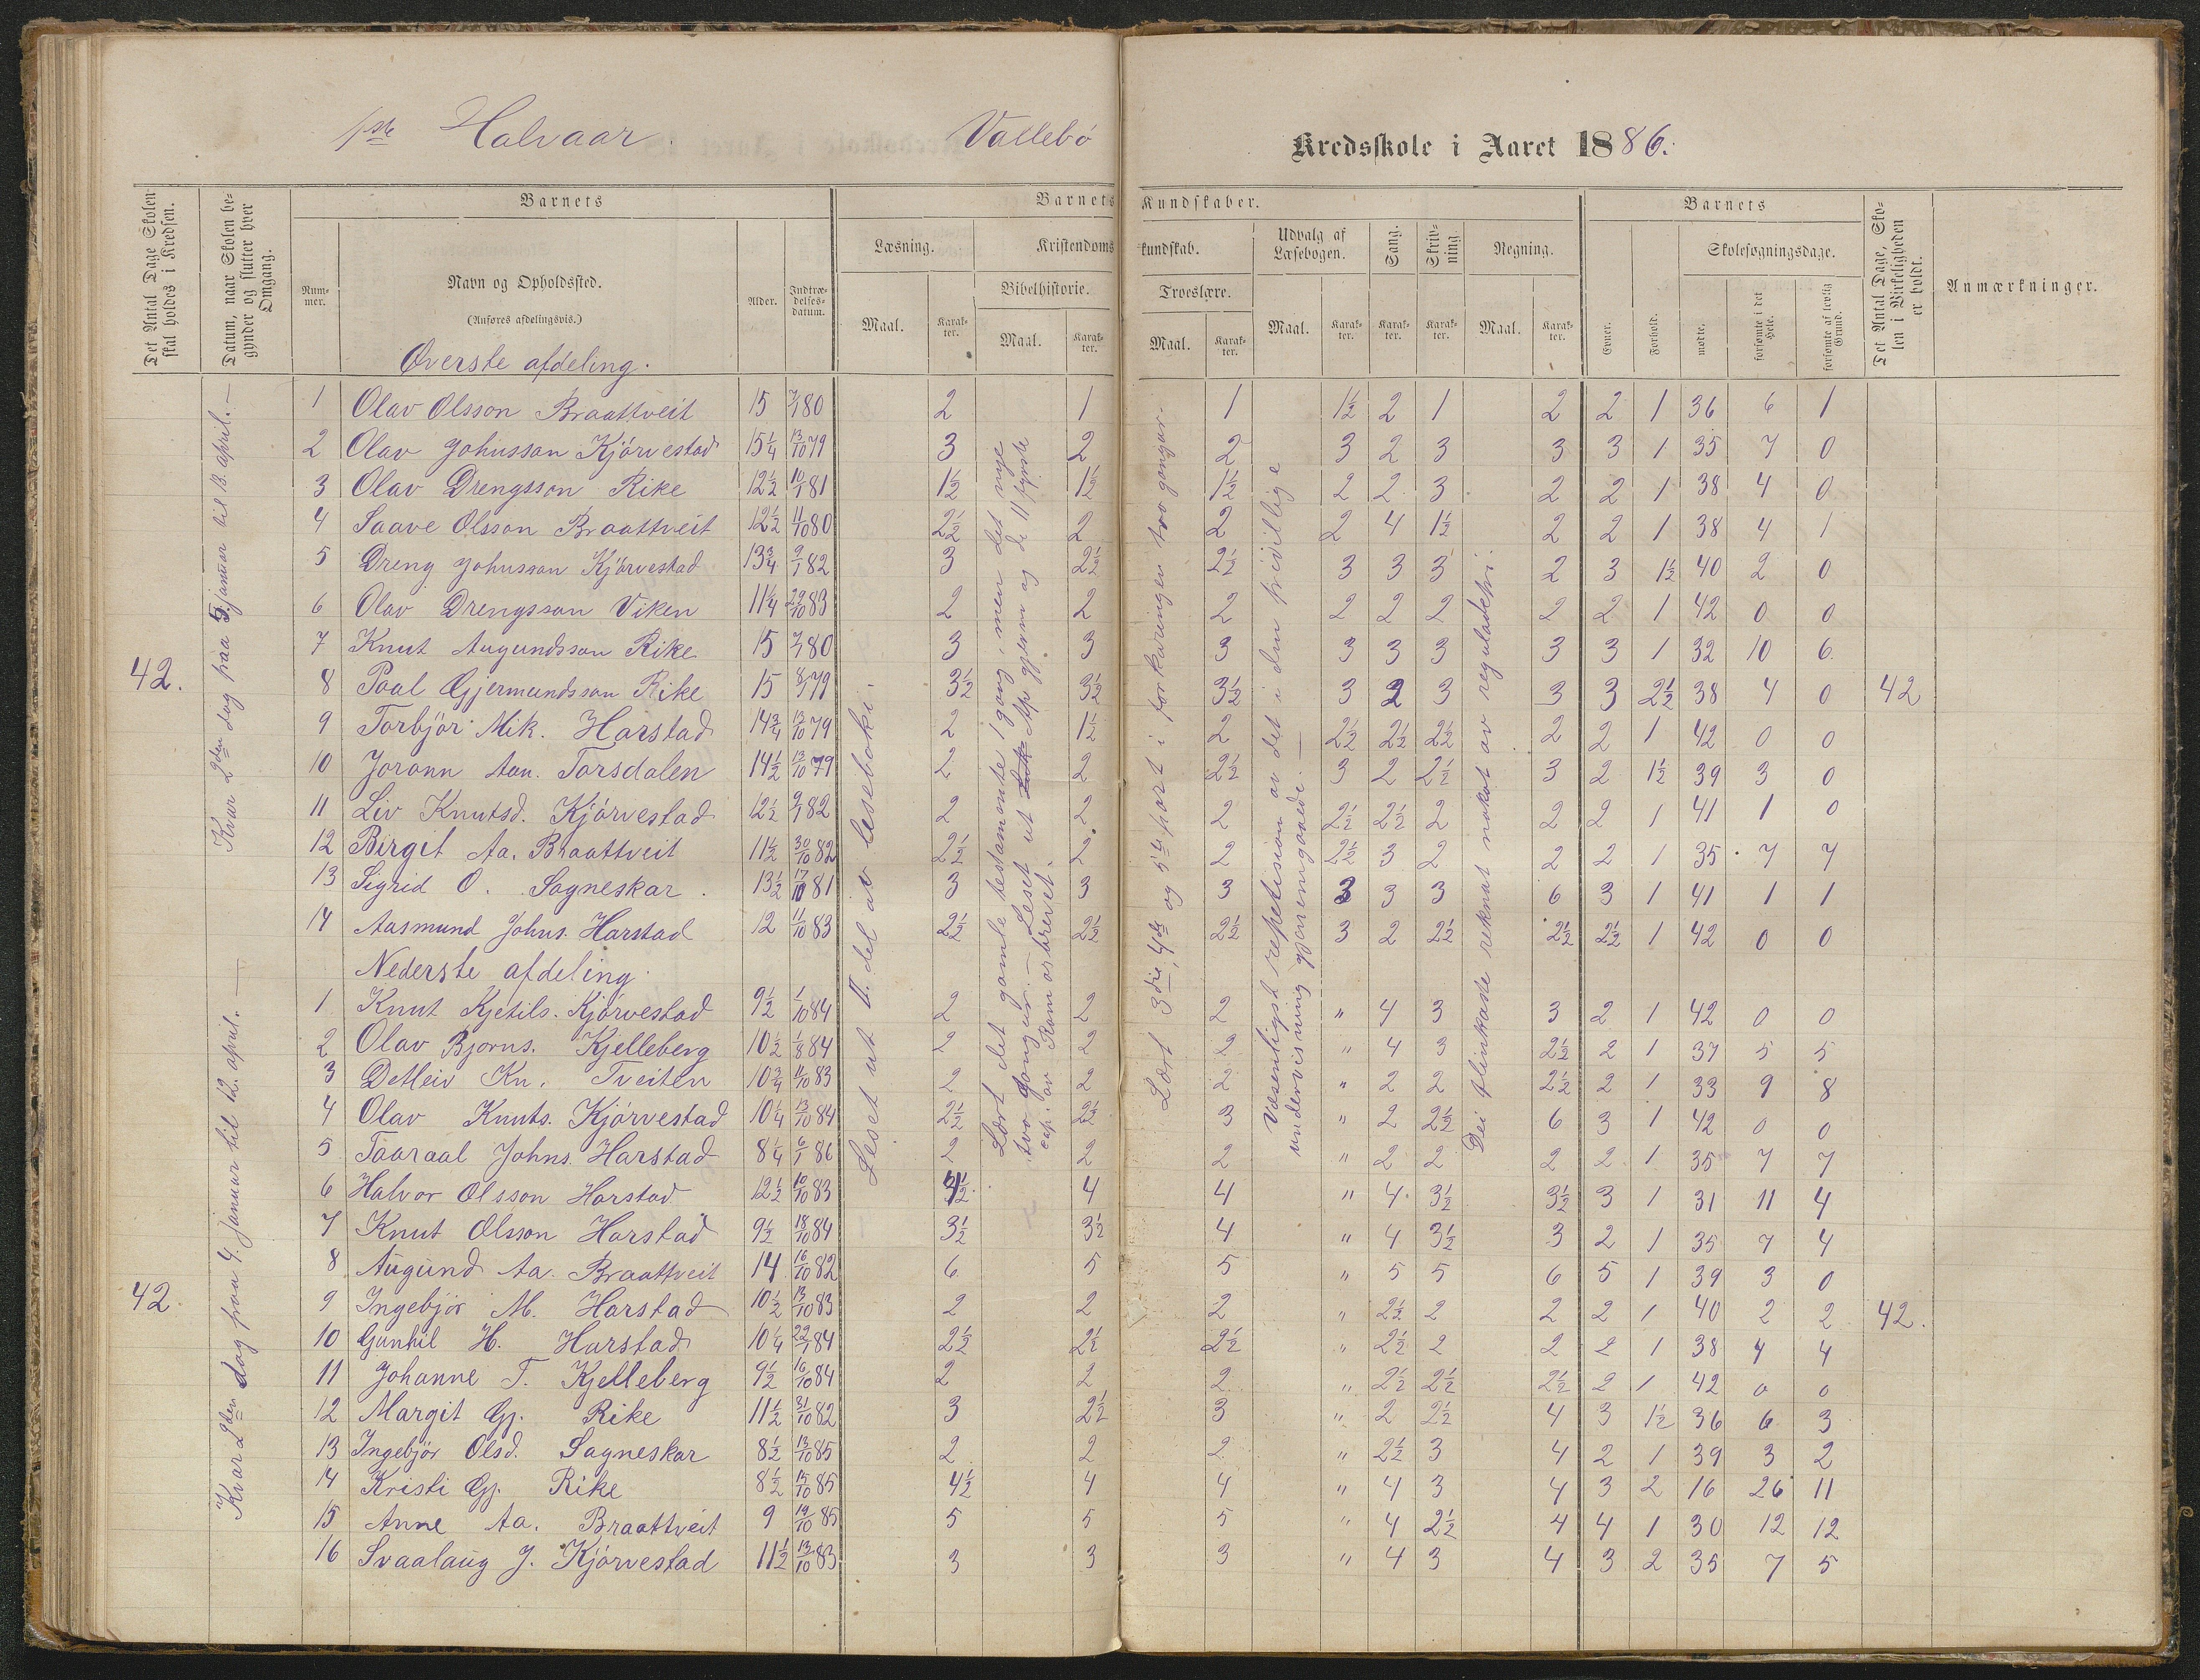 1ste Halvaar. Vallebö Kredsskole i Aaret 1886.
Det Antal Dage Skolen skal holdes i Kredsen.
Datum, naar Skolen begynder og slutter hver Omgang.
Barnets
Barnets Kundskaber.
Barnets
Det Antal Dage, Skolen i Virkeligheden er holdt.
Anmærkninger.
Nummer.
Navn og Opholdssted.
(Anføres afdelingsvis.)
Alder.
Indtrædelsesdatum.
Læsning.
Kristendomskundskab.
Udvalg af Læsebogen.
Sang.
Skrivning.
Regning.
Evner.
Forhold.
Skolesøgningsdage.
Bibelhistorie.
Troeslære.
Maal.
Karakter.
Maal.
Karakter.
Maal.
Karakter.
Maal.
Karakter.
Karakter.
Karakter.
Maal.
Karakter.
mødte.
forsømte i det Hele.
forsømte af lovlig Grund.
Øverste afdeling.
1 Olav Olsson Braattveit 15 7/1 80 2 1 1 1½ 2 1 2 2 1 36 6 1
2 Olav Johnsson Kjörvestad 15¼ 13/10 79 3 2 2 3 2 3 3 3 1 35 7 0
3 Olav Drengsson Rike 12½ 10/1 81 1½ 1½ 1½ 2 2 3 2 2 1 38 4 0
4 Saave Olsson Braattveit 12½ 11/10 80 2½ 2 2 2 4 1½ 2 2 1 38 4 1
5 Dreng Johnsson Kjörvestad 13¾ 9/1 82 3 2½ 2½ 3 3 3 2 3 1½ 40 2 0
6 Olav Drengsson Viken 11¼ 29/10 83 2 2 2 2 2 2 2 2 1 42 0 0
7 Knut Augundsson Rike 15 7/1 80 3 3 3 3 3 3 3 3 1 32 10 6
42. 8 Paal Gjermundsson Rike 15 8/1 79 3½ 3½ 3½ 3 2 3 3 3 2½ 38 4 0 42
9 Torbjör Mik. Harstad 14¾ 13/10 79 2 1½ 2 2½ 2½ 2½ 2 2 1 42 0 0
10 Jorann Aan. Torsdalen 14½ 13/10 79 2 2 2½ 3 2 2½ 3 2 1½ 39 3 0
11 Liv Knutsd. Kjörvestad 12½ 9/1 82 2 2 2 2½ 2½ 2 2 2 1 41 1 0
12 Birgit Aa. Braattveit 11½ 30/10 82 2½ 2 2 2½ 3 2 2 2 1 35 7 7
13 Sigrid O. Sagneskar 13½ 17/10 81 3 3 3 3 3 3 6 3 1 41 1 1
14 Aasmund Johns. Harstad 12 11/10 83 2½ 2½ 2½ 3 2 2½ 2½ 2½ 1 42 0 0
Nederste afdeling.
1 Knut Kjetils. Kjörvestad 9½ 1/10 84 2 2 2 " 4 3 3 2 1 42 0 0
2 Olav Bjorns. Kjelleberg 10½ 1/8 84 2 2 2 " 4 3 2½ 2 1 37 5 5
3 Detleiv Kn. Tveiten 10¾ 11/10 83 2 2 2 " 2 2 2½ 2 1 33 9 8
4 Olav Knuts. Kjörvestad 10¼ 13/10 84 2½ 2½ 3 " 2 2½ 6 3 1 42 0 0
5 Taaraal Johns. Harstad 8¼ 6/1 86 2 2 2 " 2 2 2 2 1 35 7 7
6 Halvor Olsson Harstad 12½ 10/10 83 4 4 " 4 3½ 3½ 3 1 31 11 4
7 Knut Olsson Harstad 9½ 18/10 84 3½ 3½ 4 " 4 3½ 3 2 1 35 7 4
8 Augund Aa. Braattveit 14 16/10 82 6 5 5 " 5 5 6 5 1 39 3 0
42. 9 Ingebjör M. Harstad 10½ 13/10 83 2 2 2 " 2½ 2 2 2 1 40 2 2 42.
10 Gunhil H. Harstad 10¼ 22/1 84 2½ 2½ 2½ " 2½ 2 2 2 1 38 4 4
11 Johanne T. Kjelleberg 9½ 16/10 84 2 2 2 " 2½ 2½ 2½ 2 1 42 0 0
12 Margit Gj. Rike 11½ 31/10 82 3 2½ 3 " 2 2½ 4 3 1½ 36 6 3
13 Ingebjör Olsd. Sagneskar 8½ 13/10 85 2 2 2 " 2½ 3 4 2 1 39 3 2
14 Kristi Gj. Rike 8½ 15/10 85 4½ 4 4 " 4 3 4 3 2 16 26 11
15 Anne Aa. Braattveit 9 19/10 85 5 5 5 " 4 2½ 4 4 1 30 12 12
16 Svaalaug J. Kjörvestad 11½ 13/10 83 3 3 3 " 4 3 4 3 2 35 7 5
Kvar 2den dag fraa 5. januar til 13. april. —
Kvar 2den dag fraa 4. januar til 12. april. —
Leset ut II. del av leseboki.
Lært det gamle testamente 1 gang, men det nye
tvo gongur. — Leset ut Ap gjerm og de 11 fyrste
cap. av Romarbrevet.
Lært 3die, 4de og 5te part i forkaringen tvo gongar.
Væsentligst repetision av det i den frivillige
undervisning gjennemgaaede. —
Dei flinkaste reknat nokot av reguladetri.